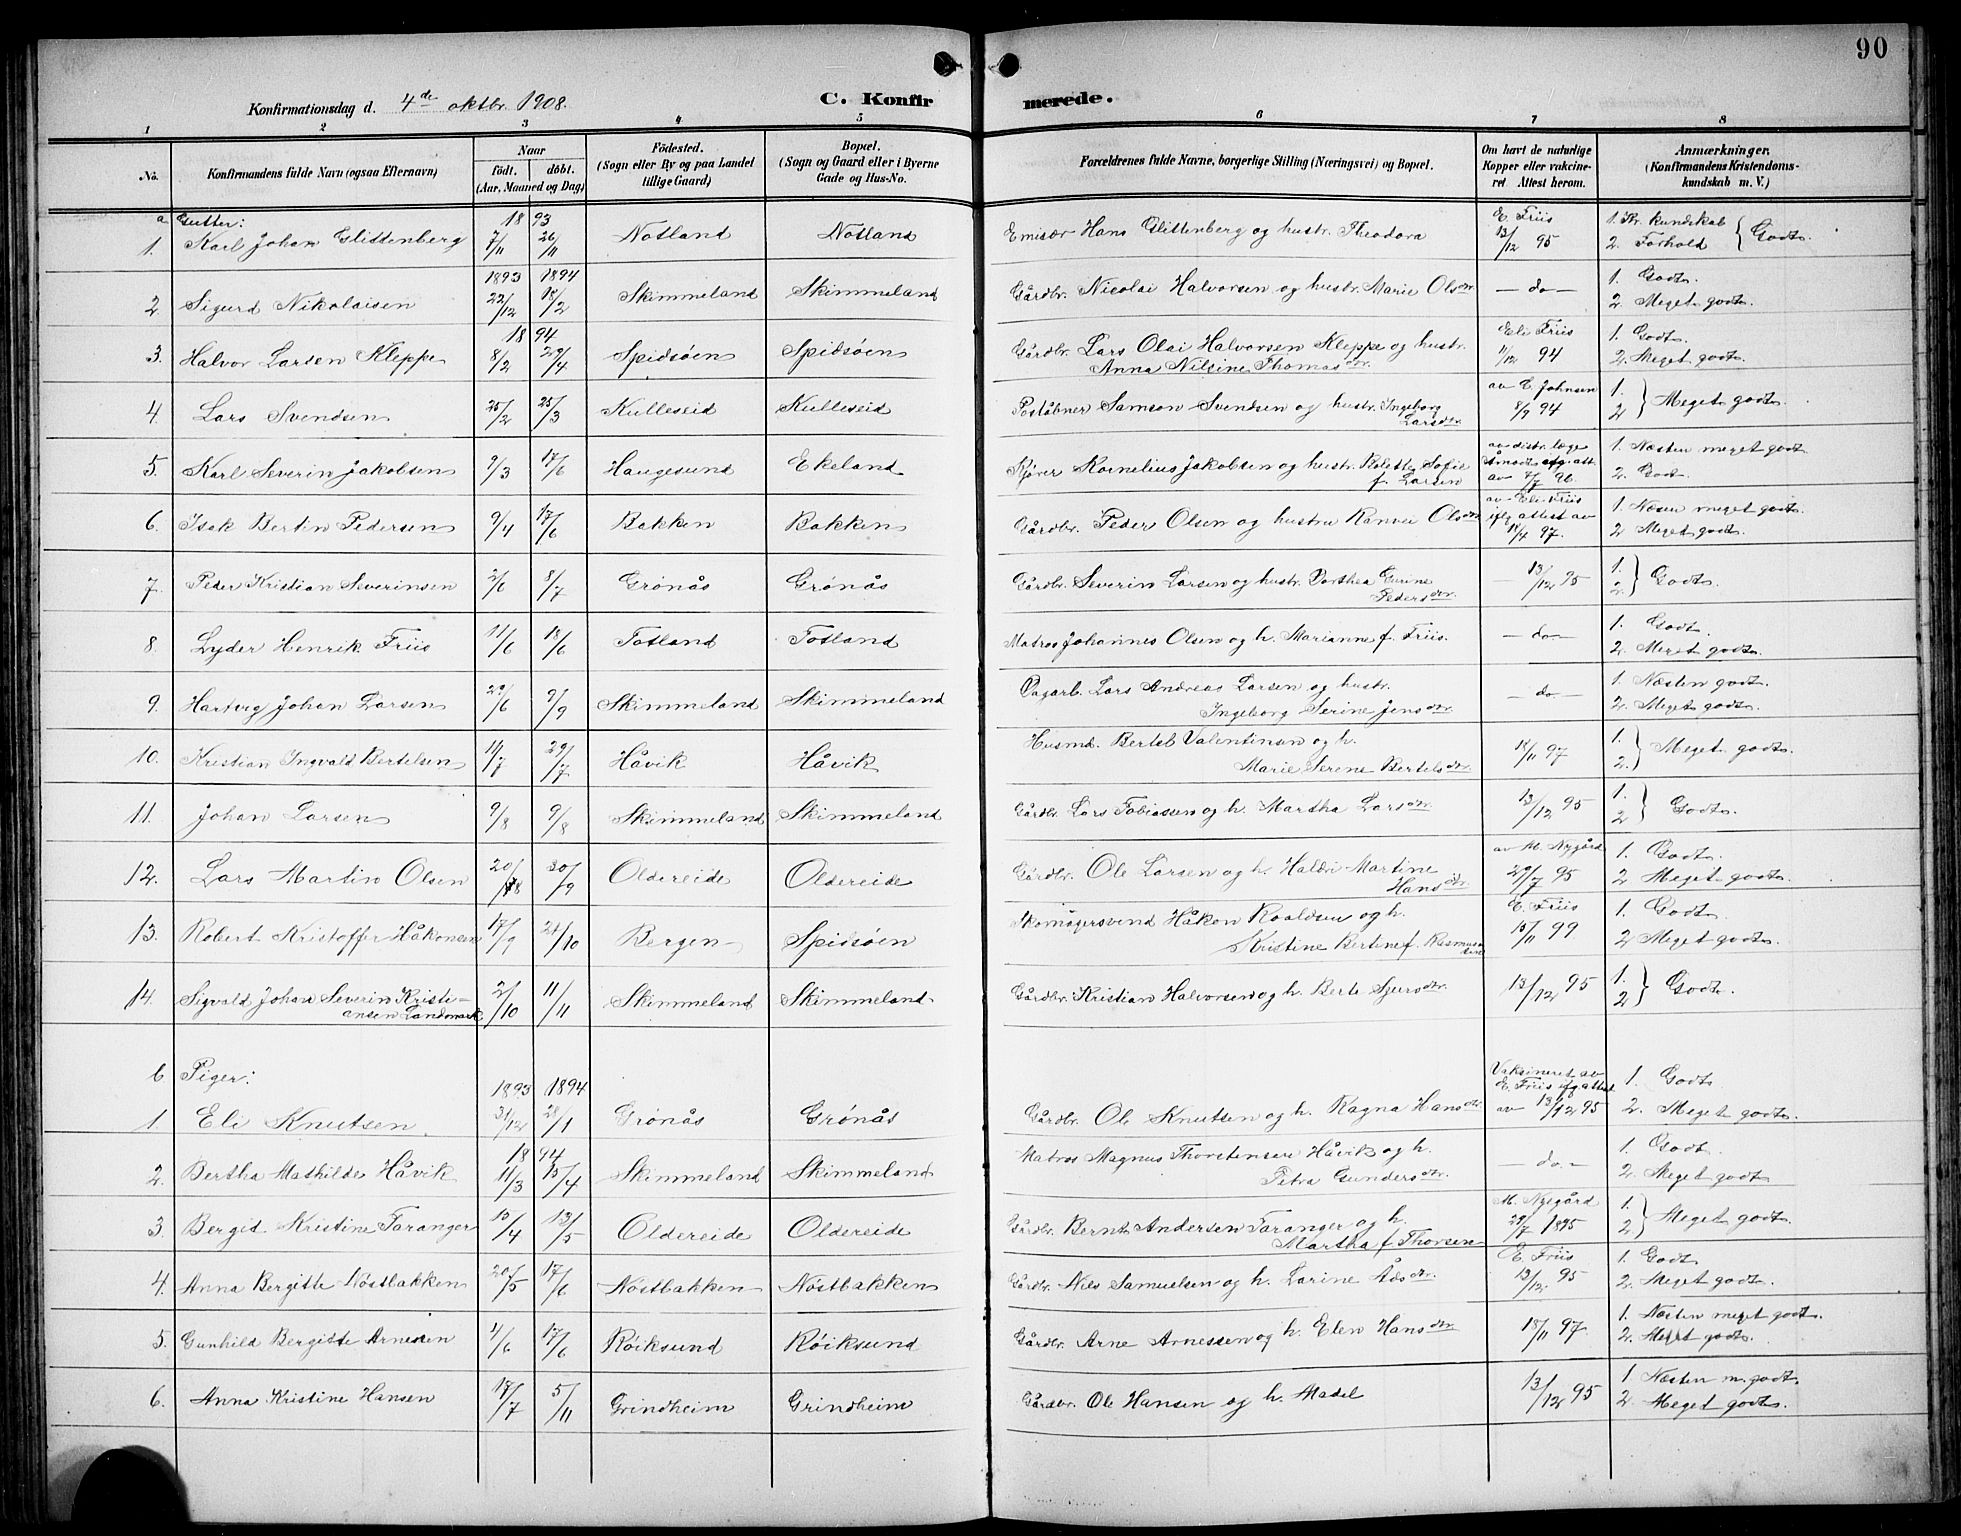 90
Konfirmationsdag d. 4de oktbr. 1908. C. Konfirmerede.
1 2 3 4 5 6 7 8
No. Konfirmandens fulde Navn (ogsaa Efternavn) Naar født. døbt. (Aar, Maaned og Dag) Fødested. (Sogn eller By og paa Landet tillige Gaard) Bopæl. (Sogn og Gaard eller i Byerne Gade og Hus-No. Forældrenes fulde Navne, borgerlige Stilling (Næringsvei) og Bopæl. Om havt de naturlige Kopper eller vakcineret Attest herom. Anmærkninger. (Konfirmandens Kristendomskundskab m. V.)
a Gutter: 1893
1. Karl Johan Glittenberg 7/11 26/11 Notland Notland Emisær Hans Glittenberg og hustr. Theodora E. Friis 13/12 95 1. Kr. kundskab 2. Forhold } Godt.
1893 1894
2 Sigurd Nikolaisen 22/12 18/2 Skimmeland Skimmeland Gårdbr. Nicolai Halvorsen og hustr. Marie Olsdtr. — do — 1. Godt. 2. Meget godt.
1894
3. Halvor Larsen Kleppe 8/2 29/4 Spidsøen Spidsøen Gårdbr. Lars Olai Halvorsen Kleppe og hustr. Anna Nilsine Thomasdtr. Eli Friis 11/12 94 1. Godt. 2. Meget godt.
4. Lars Svendsen 25/2 25/3 Kulleseid Kulleseid Poståbner Samson Svendsen og hustr. Ingeborg Larsdtr. av E. Johnsen 8/9 94 1. 2 } Meget godt.
5. Karl Severin Jakobsen 9/3 17/6 Haugesund Ekeland Kjører Kornelius Jakobsen og hustr. Rolette Sofie f. Larsen av distr. læge Åmodt efg. att. av 7/7 96. 1. Næsten meget godt 2. Godt.
6. Isak Bertin Pedersen 9/4 17/6 Bakken Bakken Gårdbr. Peder Olsen og hustru Ranvei Olsdtr. av Eli Friis iflg attest av 18/4 97. 1. Næsen meget godt. 2 Meget godt.
7. Peder Kristian Severinsen 2/6 8/7 Grønås Grønås Gårdbr. Severin Larsen og hustr. Dorthea Gurine Pedersdtr. 13/12 95 1. 2. } Godt.
8. Lyder Henrik Friis 11/6 18/6 Totland Totland Matros Johannes Olsen og h. Marianne f. Friis. — do — 1. Godt. 2. Meget godt.
9. Hartvig Johan Larsen 29/6 9/9 Skimmeland Skimmeland Dagarb. Lars Andreas Larsen og hustr. Ingeborg Serine Jensdtr. — do — 1. Næsten godt. 2. Meget godt.
10. Kristian Ingvald Bertelsen 11/7 29/7 Håvik Håvik Husmd. Bertel Valentinsen og h. Marie Serene Bertelsdtr. 18/11 97 1. 2. } Meget godt.
11. Johan Larsen 9/8 9/8 Skimmeland Skimmeland Gårdbr. Lars Tobiassen og h. Martha Larsdtr. 13/12 95 1. 2 } Godt.
12. Lars Martin Olsen 20/8 30/9 Oldereide Oldereide Gårdbr. Ole Larsen og h. Haldri Martine Hansdtr. av M. Nygård 29/7 95 1. Godt. 2 Meget godt.
13. Robert Kristoffer Håkonsen 17/9 21/10 Bergen Spidsøen Skomagersvend Håkon Roaldsen og h. Kristine Bertine f. Rasmussen E. Friis 15/11 99 1. Godt. 2 Meget godt.
14. Sigvald Johan Severin Kristiansen Landmark 2/10 11/11 Skimmeland Skimmeland Gårdbr. Kristian Halvorsen og h. Berte Sjursdtr. 13/12 95 1. 2 } Godt.
b Piger: 1893 1894
1. Eli Knutsen 31/12 28/1 Grønås Grønås Gårdbr. Ole Knutsen og h. Ragna Hansdtr. Vaksineret av E. Friis ifg. attest av 13/12 95 1. Godt 2. Meget godt.
1894
2. Bertha Mathilde Håvik 11/3 15/4 Skimmeland Skimmeland Matros Magnus Thorstensen Håvik og h. Petra Gundersdtr. — do — 1. Godt. 2. Meget godt
3 Bergid. Kristine Faranger 15/4 13/5 Oldereide Oldereide Gårdbr. Bernt Andersen Faranger og h. Martha f. Thorsen M. Nygård 29/7 1895 1. 2 } Meget godt.
4. Anna Bergitte Nøstbakken 20/5 17/6 Nøstbakken Nøstbakken Gårdbr. Nils Samuelsen og h. Larine Åsdtr. E. Friis 13/12 95 1. Godt 2. Meget godt.
5 Gunhild Bergitte Arnesen 4/6 17/6 Røiksund Røiksund Gårdbr. Arne Arnessen og h. Elen Hansdtr 18/11 97 1. Næsten meget godt. 2. Meget godt.
6. Anna Kristine Hansen 18/7 5/11 Grindheim Grindheim Gårdbr. Ole Hansen og h. Madel 13/12 95 1 Næsten m. godt. 2. Meget godt.